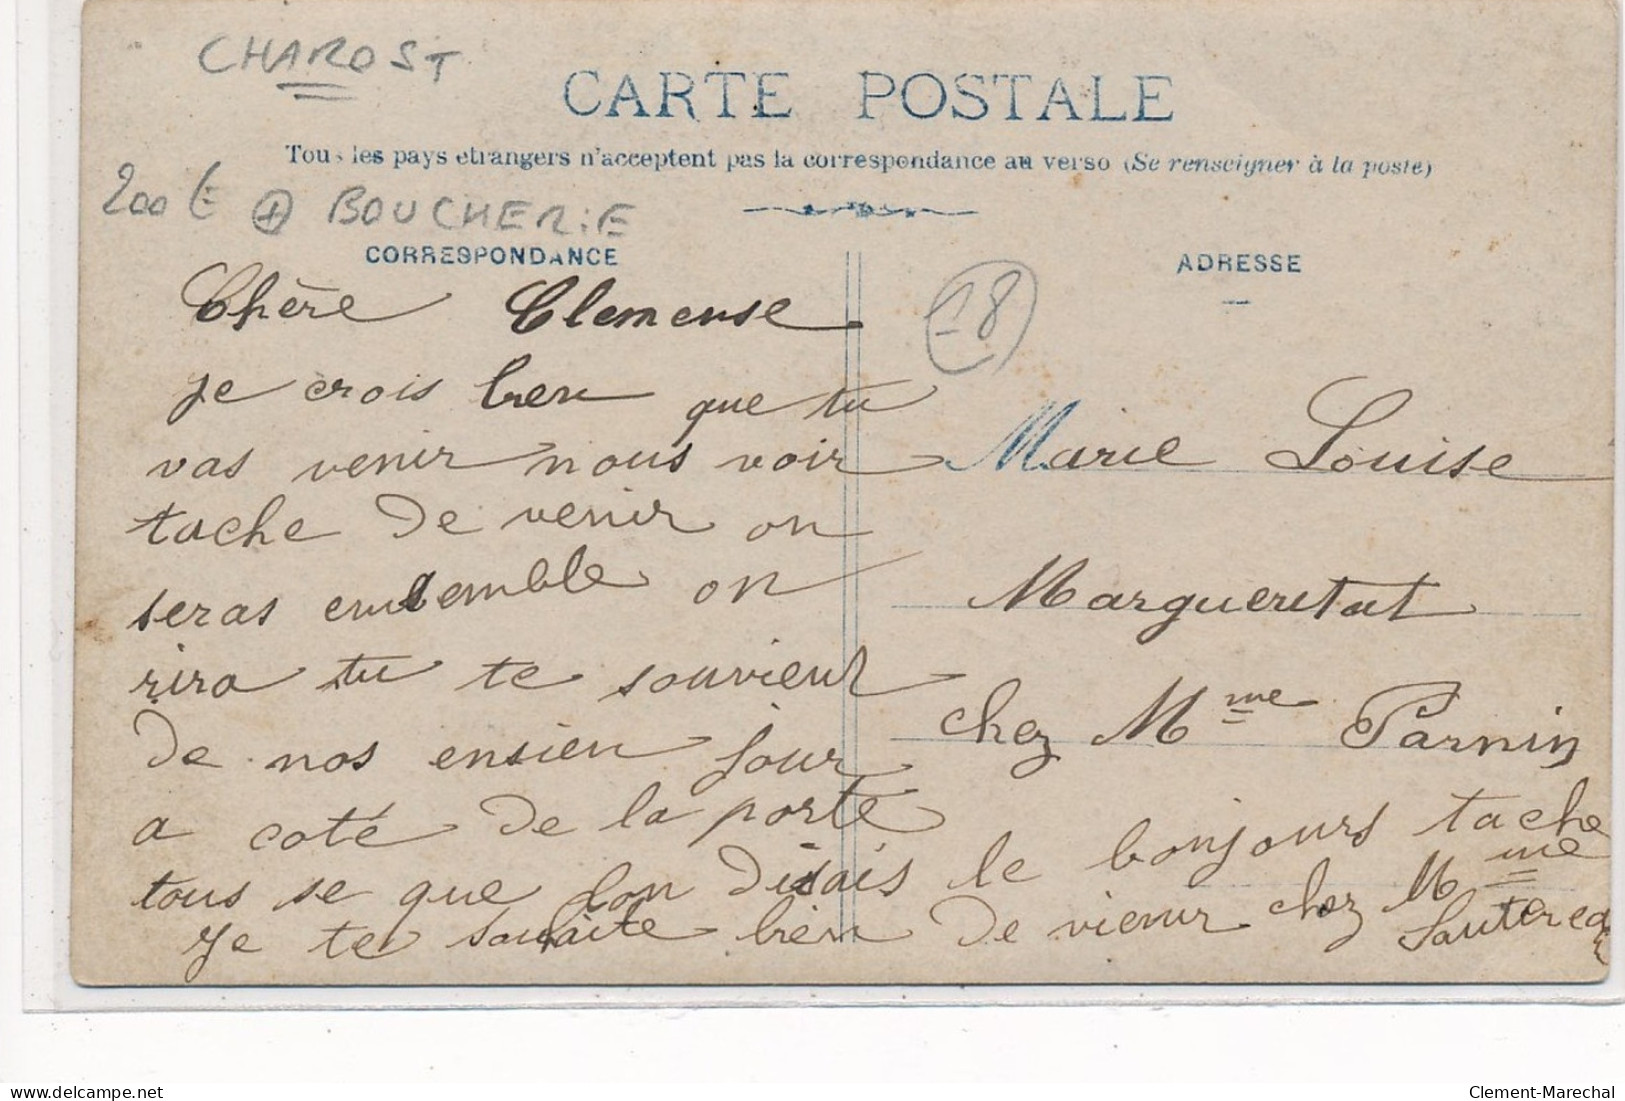 CHAROST
CARTE POSTALE
Tous les pays etrangers n'acceptent pas la correspondance au verso (Se renseigner à la poste)
200 € + BOUCHERIE
CORRESPONDANCE
ADRESSE
18
Chère Clemense
je crois bien que tu
vas venir nous voir
tache de venir on
seras ensemble on
rira tu te souvient
de nos ensien jour
a coté de la porte
tous se que lon disais le bonjours tache
Je te souhaite bien de vienir chez Mme
Marie Louise
Margueritat
chez Mme Parnin
Clement-Marechal